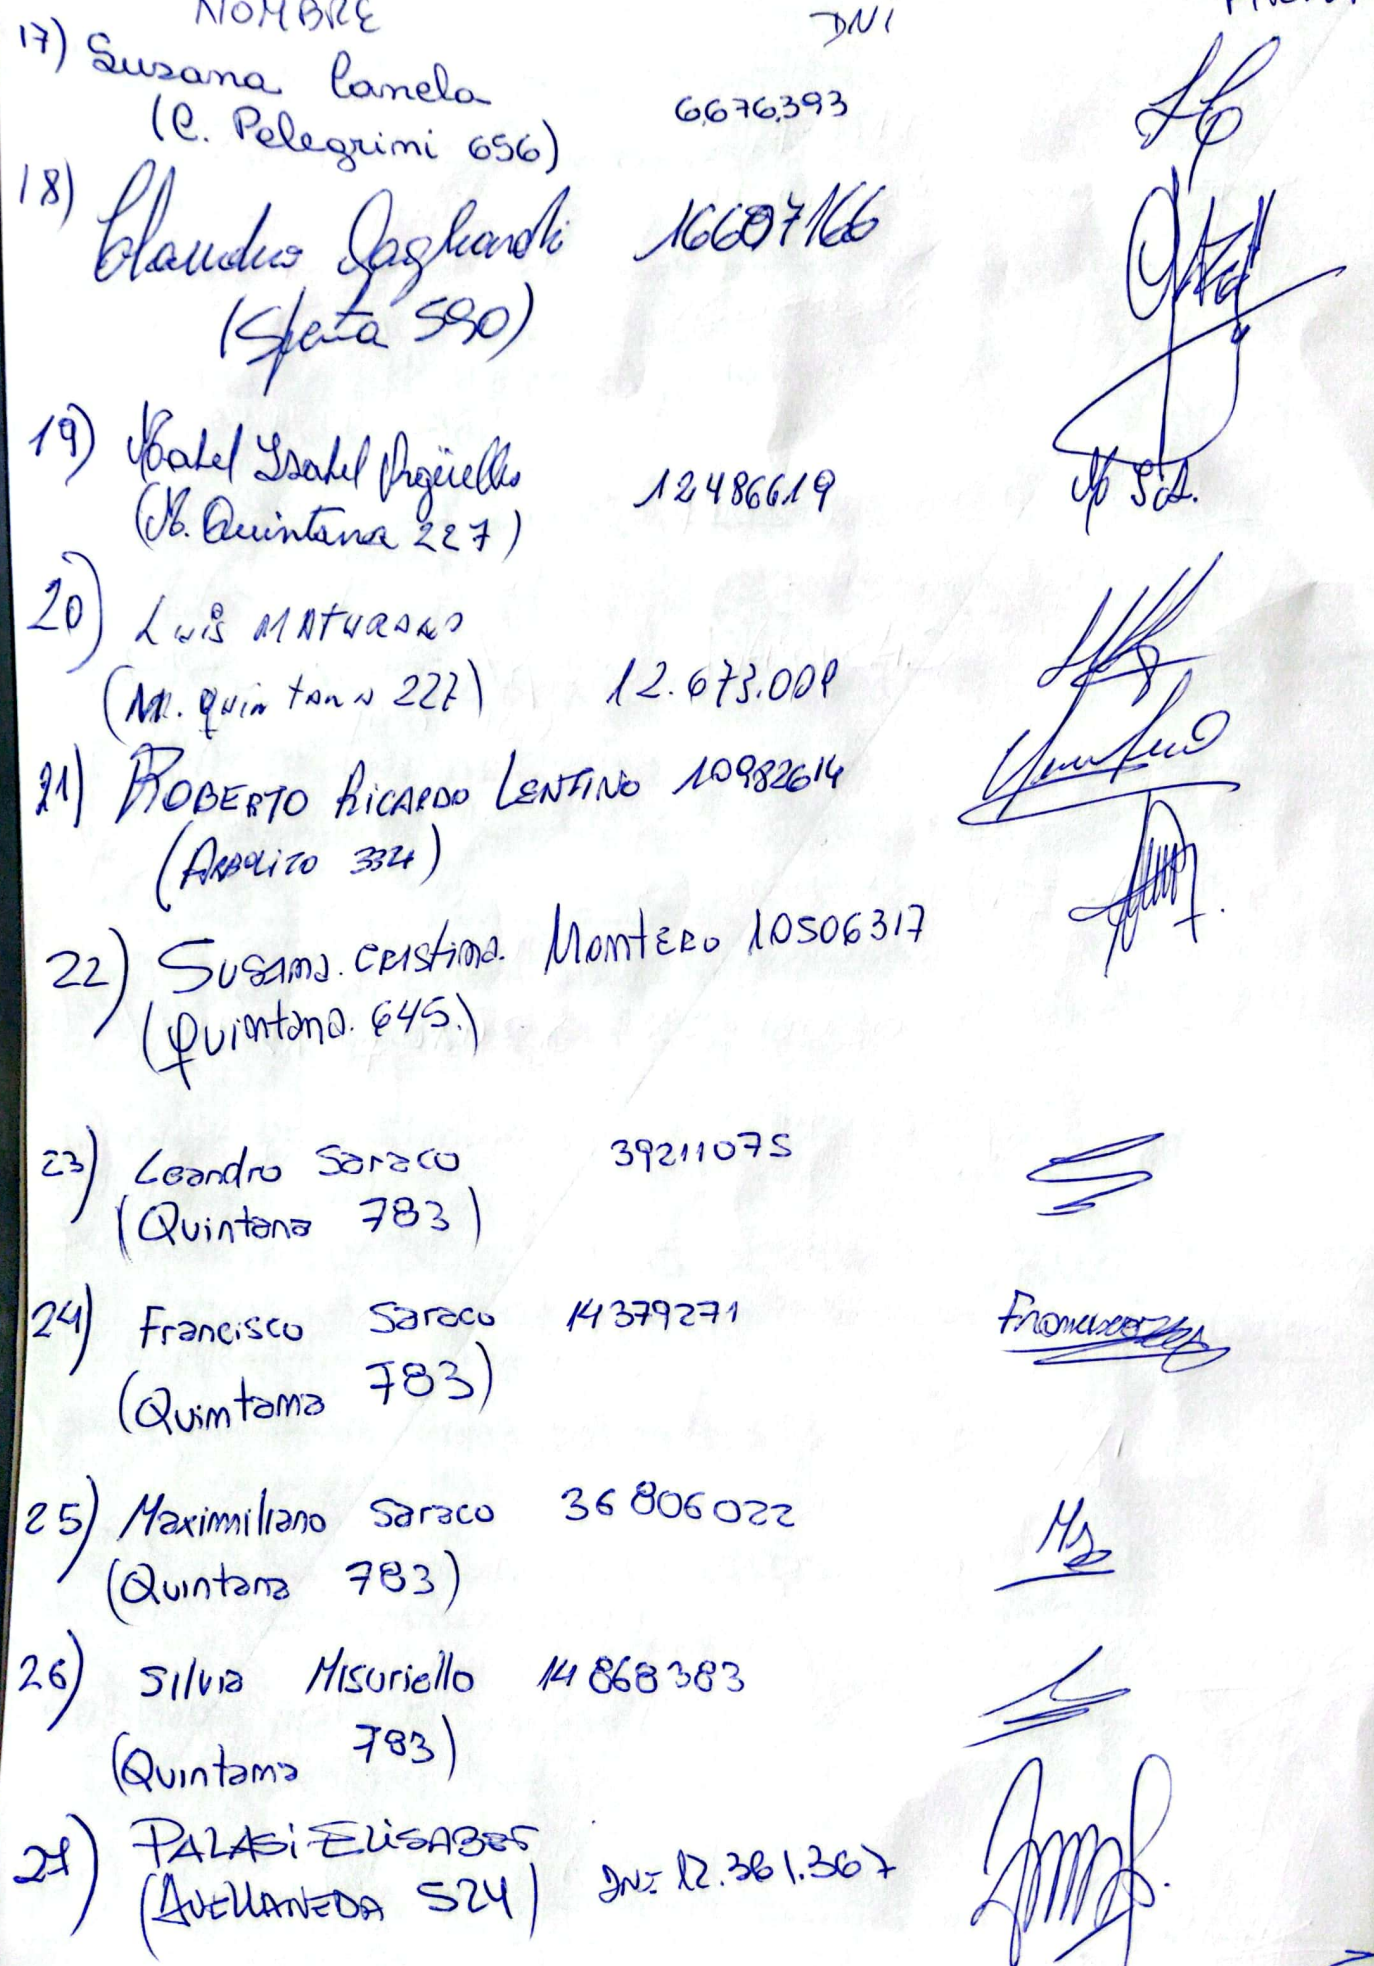 NOMBRE DNI
17) Susana Canela
(C. Pelegrini 656) 6.676.393
18) Claudio Gagliardi 16607166
(Spenta 590)
19) Mabel Isabel Argüello
(M. Quintana 227) 12486619 M I.A.
20) Luis MATURANO
(M. Quintana 227) 12.673.009
21) ROBERTO RICARDO LENTINO 10982614
(ARBOLITO 334)
22) SUSANA. CRISTINA. MONTERO 10506317
(Quintana. 645.)
23) Leandro Saraco 39211075
(Quintana 783)
24) Francisco Saraco 14379271 Francisco
(Quintana 783)
25) Maximiliano Saraco 36806022 MS
(Quintana 783)
26) Silvia Misuriello 14868383
(Quintana 783)
27) PALASi ELiSABET
(AVELLANEDA 524) DNI 12.361.367